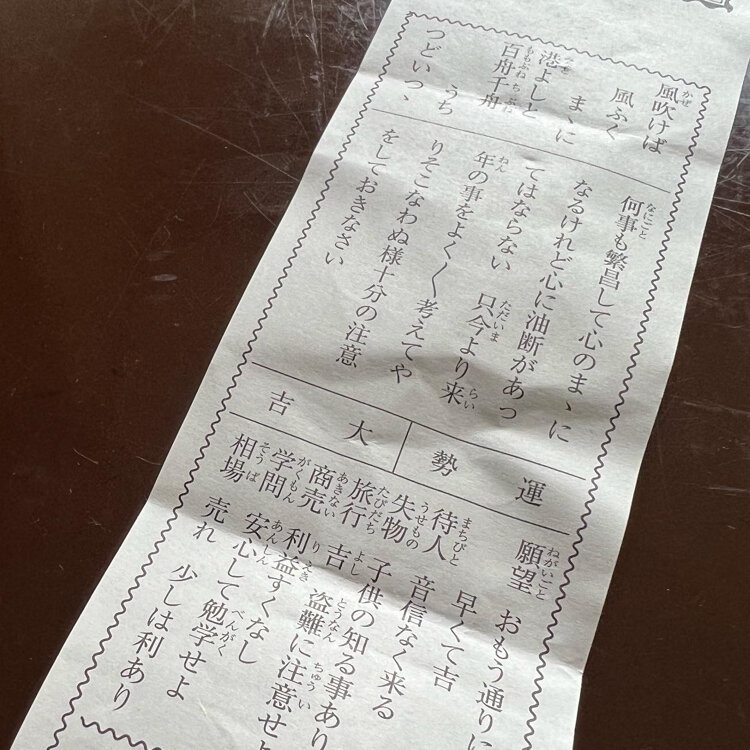 風吹けば
風ふく
まゝに
港よしと
百舟千舟
うち
つどいつゝ
何事も繁昌して心のまゝに
なるけれど心に油断があっ
てはならない 只今より来
年の事をよく〱考えてや
りそこなわぬ様十分の注意
をしておきなさい
運勢
大吉
願望 おもう通りに
早くて吉
待人 音信なく来る
失物 子供の知る事あり
旅行 吉 盗難に注意せよ
商売 利益すくなし
学問 安心して勉学せよ
相場 売れ 少しは利あり